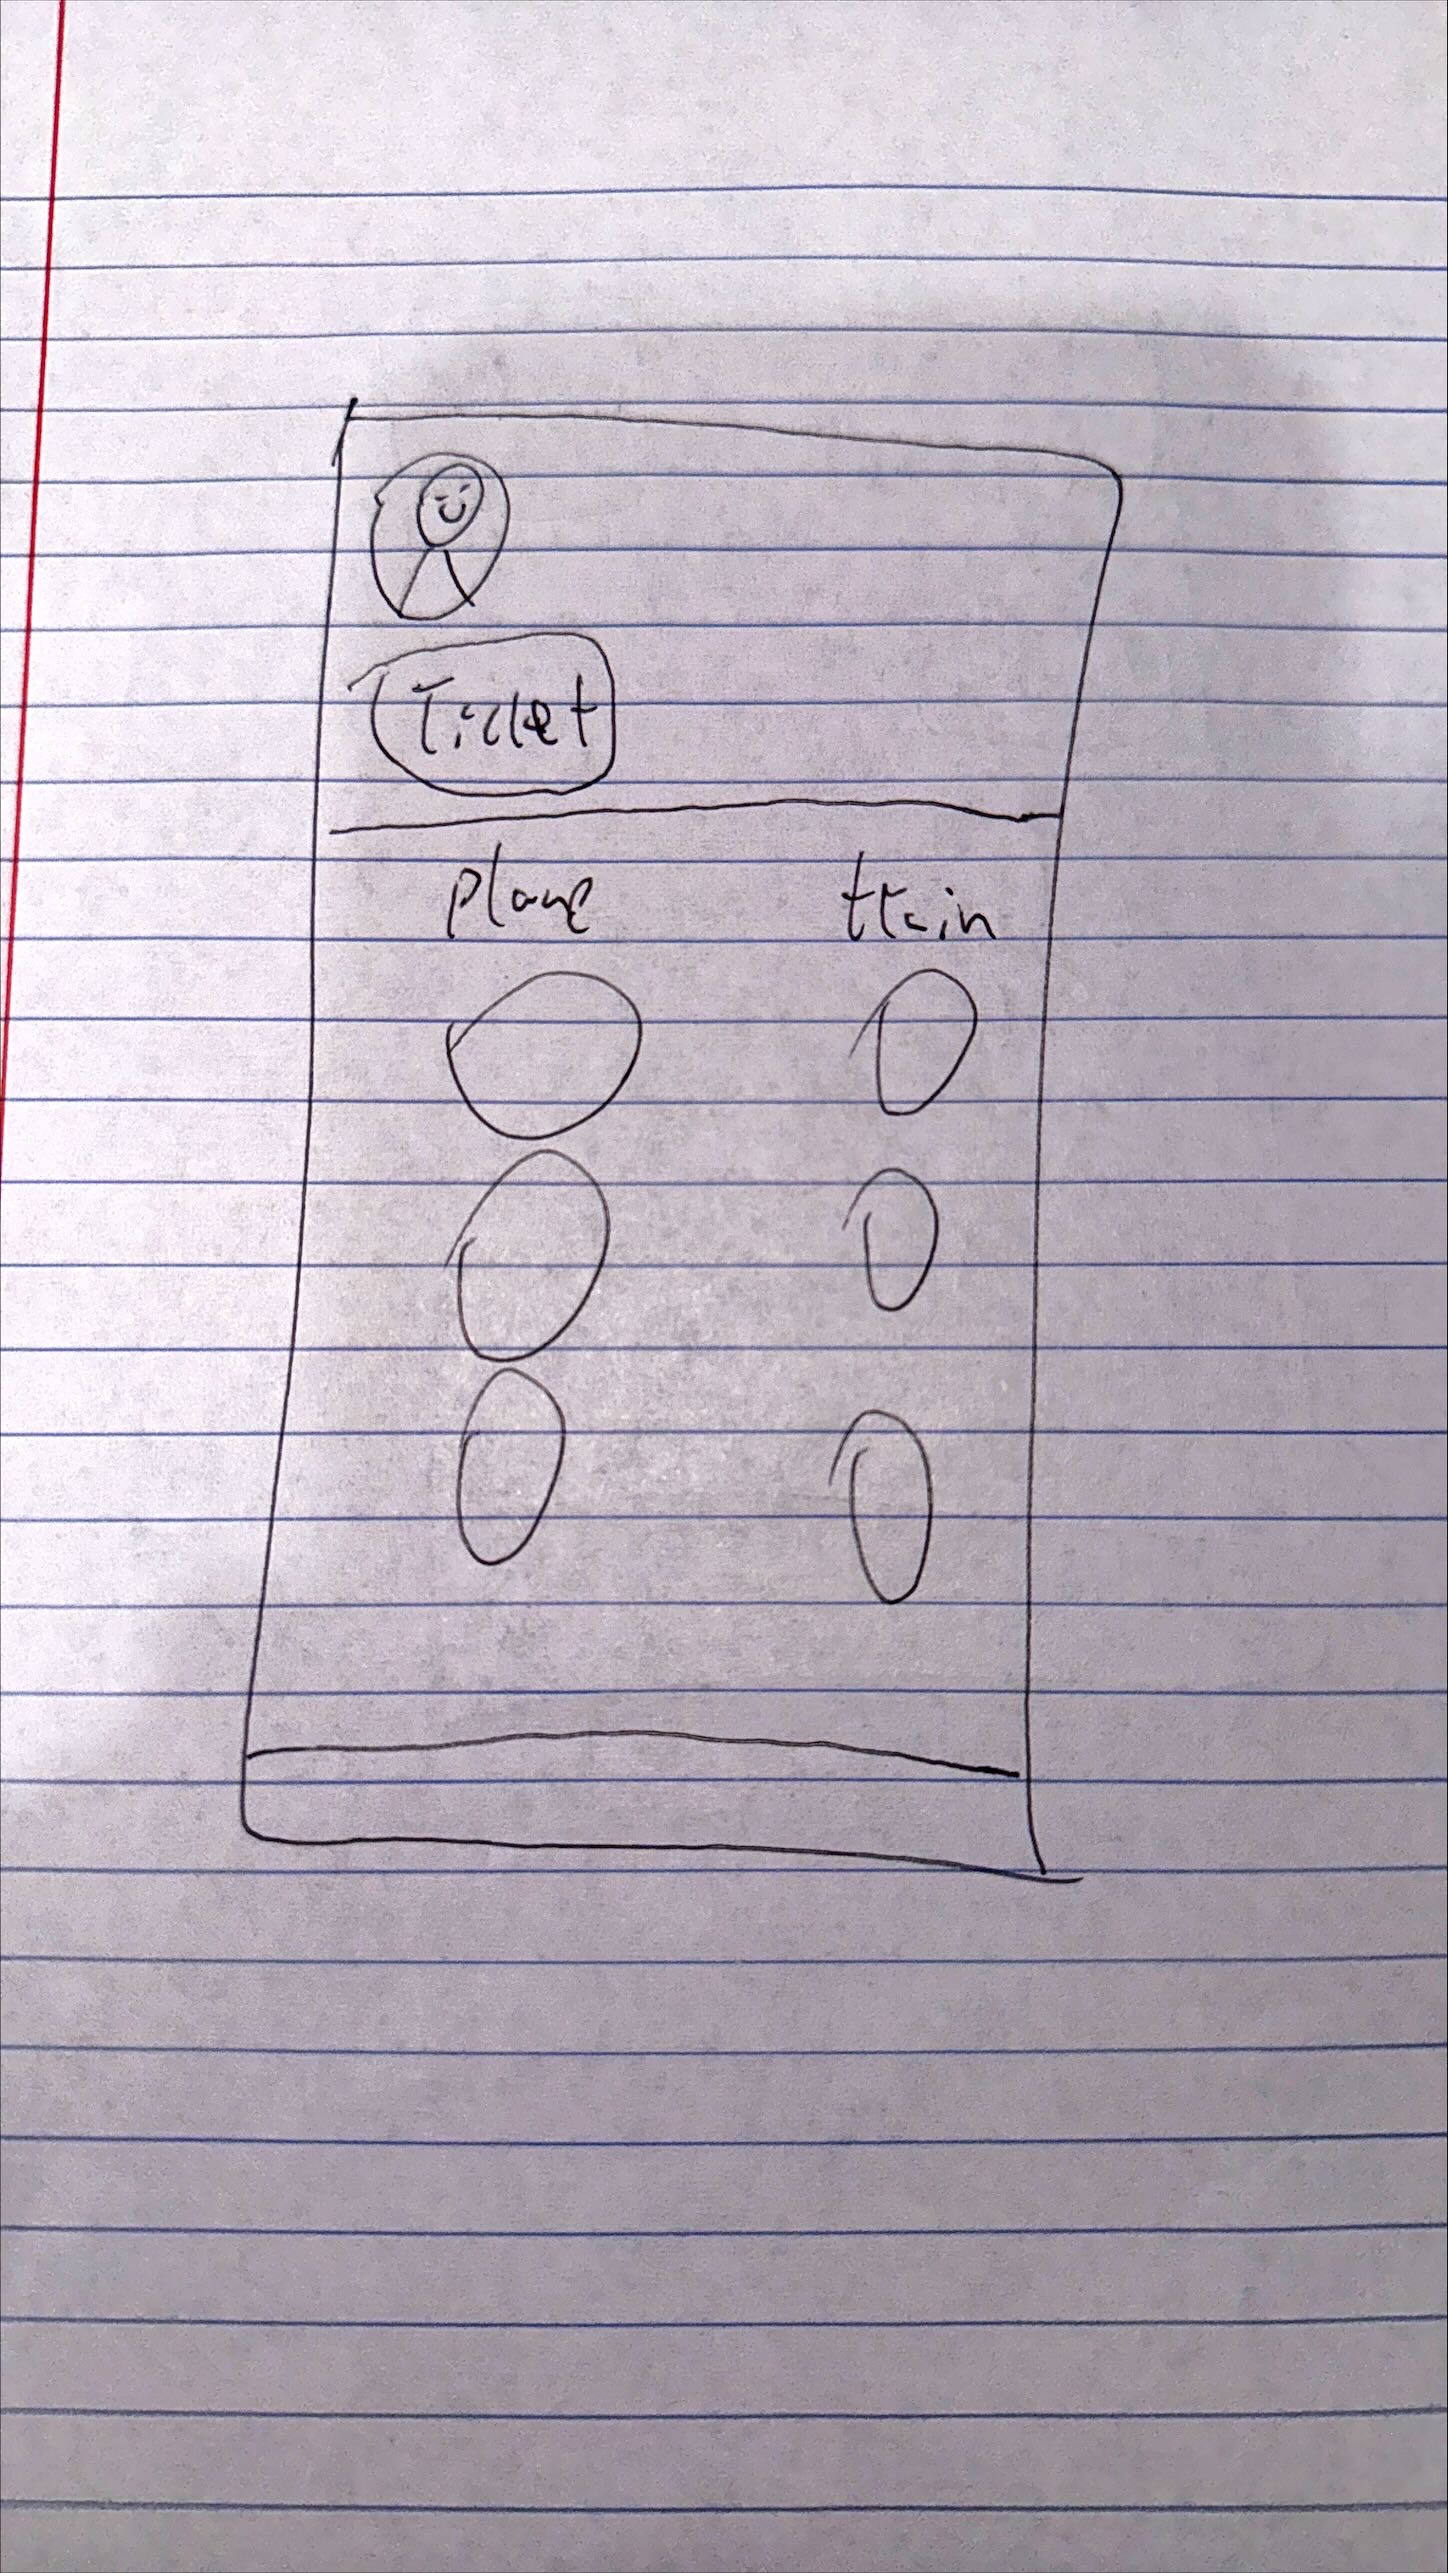 Ticket
plane train